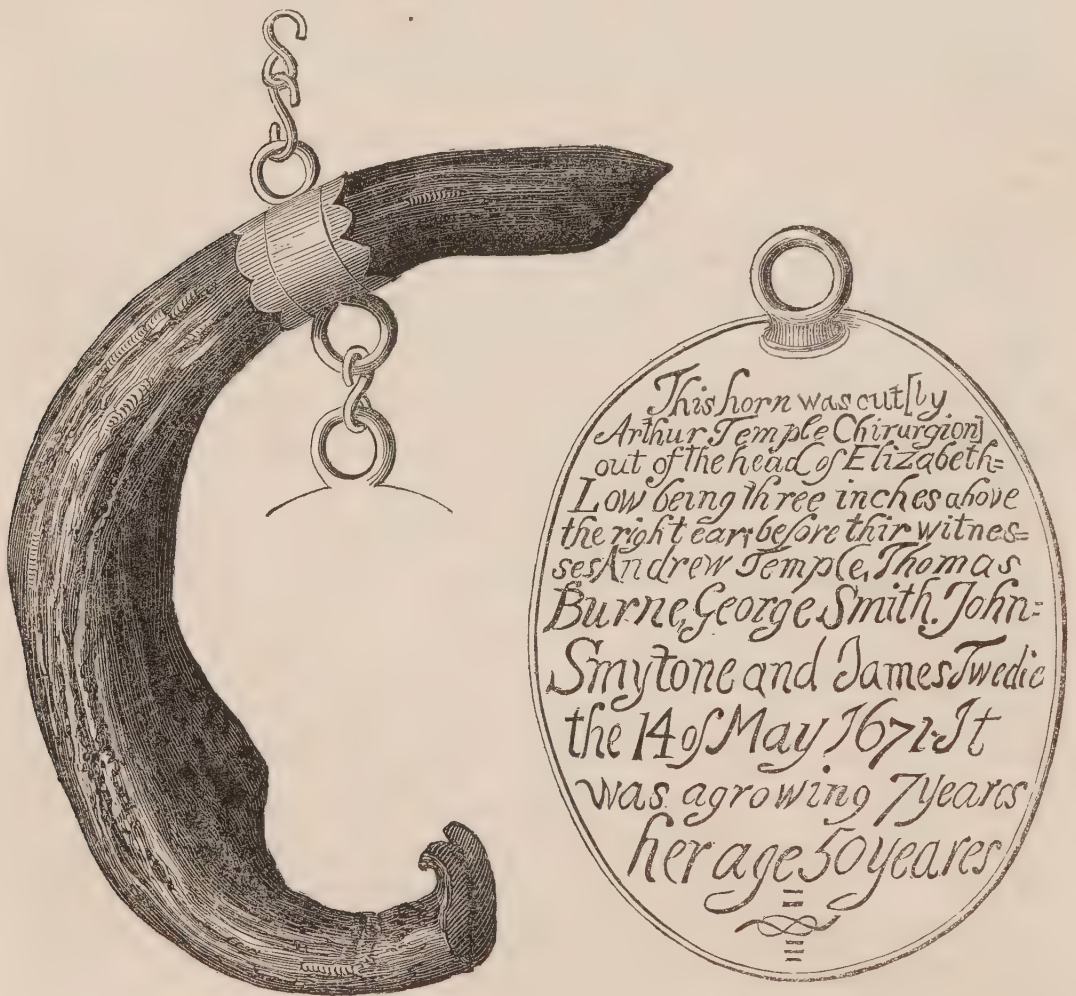 This horn was cut[by
Arthur Temple Chirurgion]
out of the head of Elizabeth=
Low being three inches above
the right ear; before thir witnes=
ses Andrew Temple, Thomas
Burne, George Smith. John=
Smytone and James Twedie
the 14 of May 1671. It
was agrowing 7 yeares
her age 50 yeares